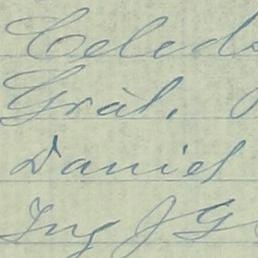 Celed
Gràl.
Daniel
Ing J G